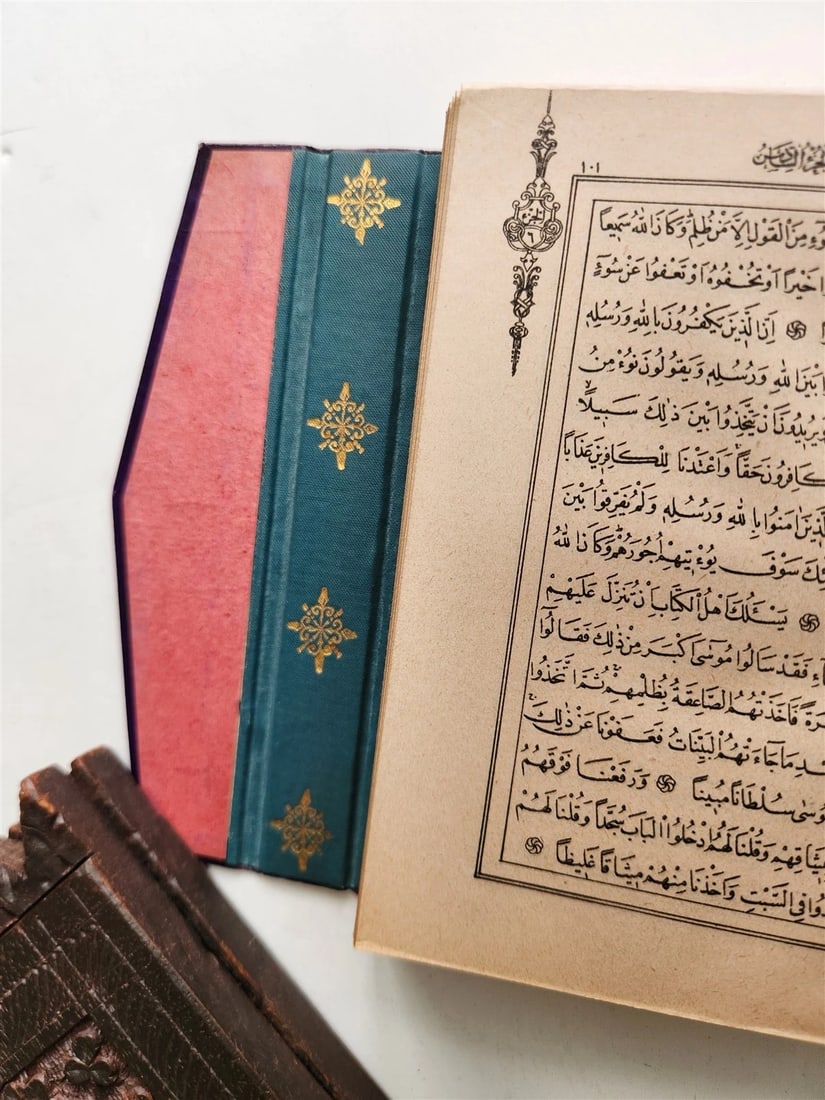 الجزء السادس
١٠١
الجزء
٦
مِنَ الْقَوْلِ اِلَّا مَنْ ظُلِمَۜ وَكَانَ اللّٰهُ سَمِيعًا
خَيْرًا اَوْ تُخْفُوهُ اَوْ تَعْفُوا عَنْ سُوٓءٍ
اِنَّ الَّذِينَ يَكْفُرُونَ بِاللّٰهِ وَرُسُلِهِ
بَيْنَ اللّٰهِ وَرُسُلِهِ وَيَقُولُونَ نُؤْمِنُ
وَيُرِيدُونَ اَنْ يَتَّخِذُوا بَيْنَ ذٰلِكَ سَبِيلًا
كَافِرُونَ حَقًّا وَاَعْتَدْنَا لِلْكَافِرِينَ عَذَابًا
ذِينَ اٰمَنُوا بِاللّٰهِ وَرُسُلِهِ وَلَمْ يُفَرِّقُوا بَيْنَ
ئِكَ سَوْفَ يُؤْتِيهِمْ اُجُورَهُمْ وَكَانَ اللّٰهُ
يَسْـَٔلُكَ اَهْلُ الْكِتَابِ اَنْ تُنَزِّلَ عَلَيْهِمْ
اءِ فَقَدْ سَاَلُوا مُوسٰٓى اَكْبَرَ مِنْ ذٰلِكَ فَقَالُٓوا
رَةً فَاَخَذَتْهُمُ الصَّاعِقَةُ بِظُلْمِهِمْ ثُمَّ اتَّخَذُوا
عْدِ مَا جَٓاءَتْهُمُ الْبَيِّنَاتُ فَعَفَوْنَا عَنْ ذٰلِكَ
وسٰى سُلْطَانًا مُبِينًا وَرَفَعْنَا فَوْقَهُمُ
مِيثَاقِهِمْ وَقُلْنَا لَهُمُ ادْخُلُوا الْبَابَ سُجَّدًا وَقُلْنَا لَهُمْ
دُوا فِي السَّبْتِ وَاَخَذْنَا مِنْهُمْ مِيثَاقًا غَلِيظًا